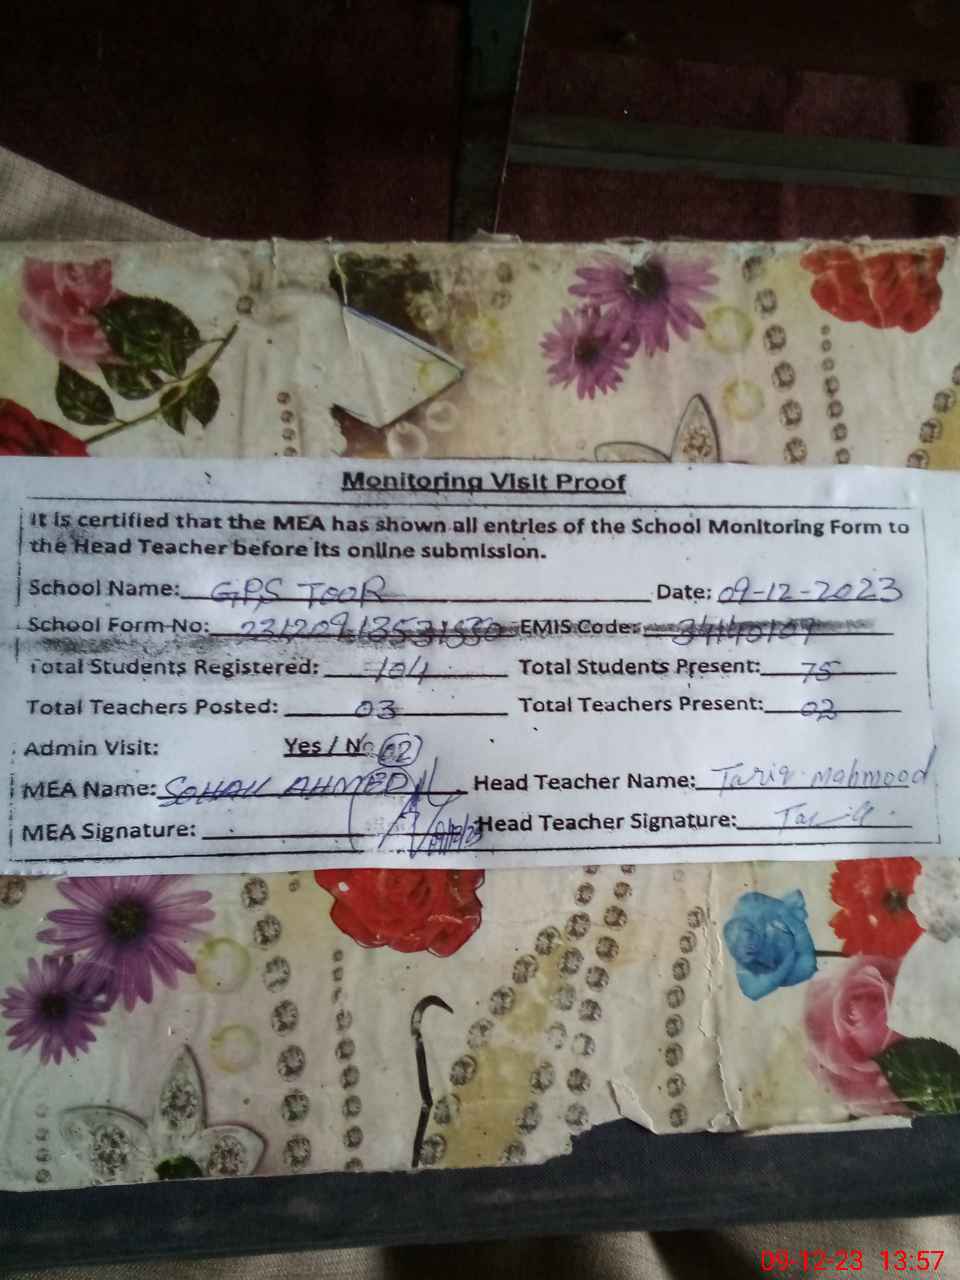 Monitoring Visit Proof
It is certified that the MEA has shown all entries of the School Monitoring Form to
the Head Teacher before its online submission.
School Name: GPS TOOR Date: 09-12-2023
School Form No: EMIS Code:
Total Students Registered: 104 Total Students Present: 75
Total Teachers Posted: 03 Total Teachers Present: 02
Admin Visit: Yes / No 02
MEA Name: SOHAIL AHMED Head Teacher Name: Tariq Mahmood
MEA Signature: Head Teacher Signature:
09-12-23 13:57